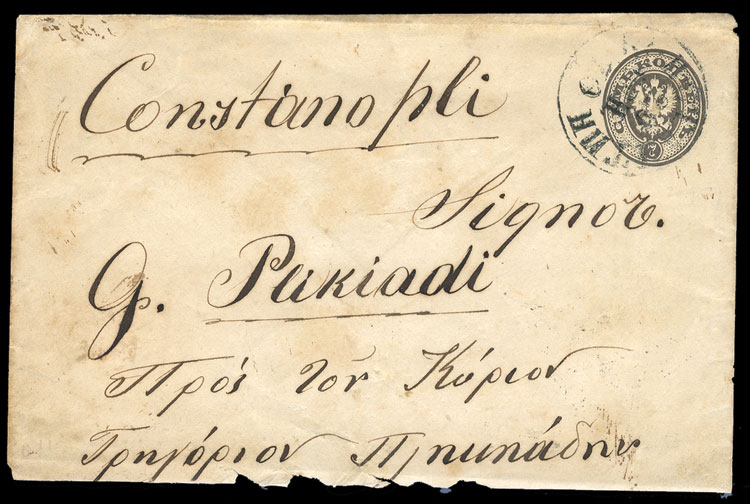 Constanopli
Signor.
G. Pukiadi
Πρὸς τὸν Κύριον
Γρηγόριον
7